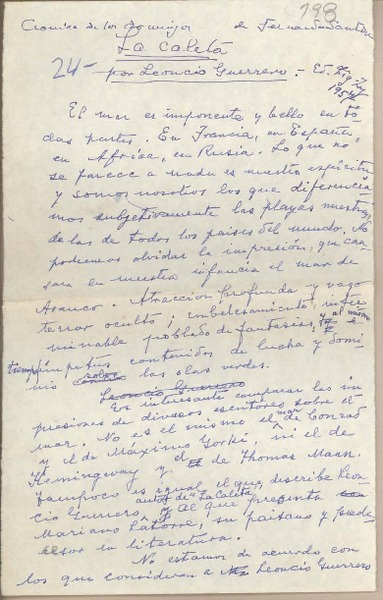 198
Cronica de los domingos de Fernando Santiván
La Caleta
24- por Leoncio Guerrero.- Ed. Zig-Zag
1957
El mar es imponente y bello en to-
das partes. En Francia, en España,
en Africa, en Rusia. Lo que no
se parece a nada es nuestro espíritu
y somos nosotros los que diferencia-
mos subjetivamente las playas nuestras
de las de todos los países del mundo. No
podremos olvidar la impresión que cau-
sara en nuestra infancia el mar de
Arauco. Atracción profunda y vago
terror oculto; embelesamiento, inter-
minable poblado de fantasías, y al mismo
tiempo ímpetus contenidos de lucha y domi-
nio sobre las olas verdes.
Leoncio Guerrero
Es interesante comparar las im-
presiones de diversos escritores sobre el
mar. No es el mismo el mar de Conrad
y el de Máximo Gorki, ni el de
Hemingway y el de Thomas Mann.
Tampoco es igual el que describe Leon-
cio Guerrero, autor de "La Caleta"
y al que presenta
Mariano Latorre, su paisano y prede-
cesor en literatura.
No estamos de acuerdo con
los que consideran a Leoncio Guerrero